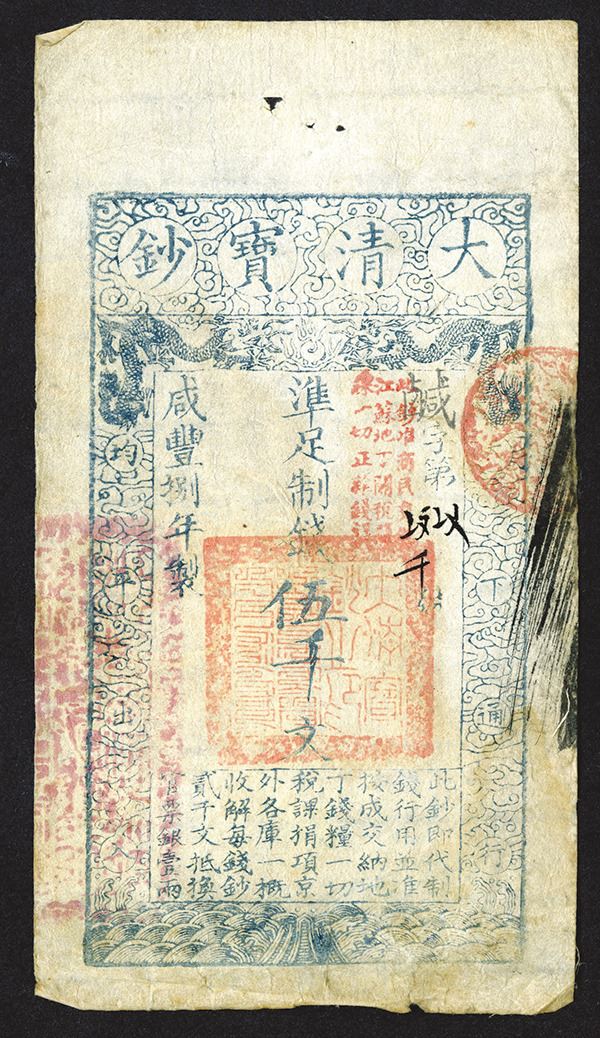 大清寶鈔
下通行
字第
此鈔准商民
江蘇地丁關稅
一切正雜錢糧
準足制錢伍千文
咸豐捌年製
均平出入
此鈔即代制
錢行用並准
按成交納地
丁錢糧一切
稅課捐項京
外各庫一概
收解每錢鈔
貳千文抵換
官票銀壹兩